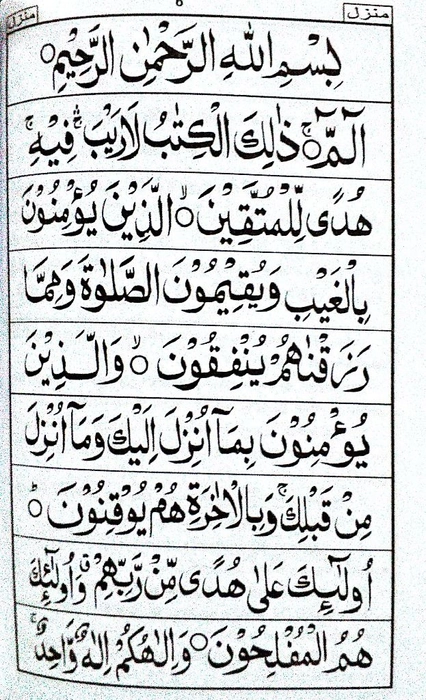 منزل منزل
بِسْمِ اللّٰهِ الرَّحْمٰنِ الرَّحِيْمِ ○
الٓمّٓ ○ۚ ذٰلِكَ الْكِتٰبُ لَا رَيْبَ ۛۖ فِيْهِ ۛۚ
هُدًى لِّلْمُتَّقِيْنَ ○ۙ الَّذِيْنَ يُؤْمِنُوْنَ
بِالْغَيْبِ وَيُقِيْمُوْنَ الصَّلٰوةَ وَمِمَّا
رَزَقْنٰهُمْ يُنْفِقُوْنَ ○ۙ وَالَّذِيْنَ
يُؤْمِنُوْنَ بِمَآ اُنْزِلَ اِلَيْكَ وَمَآ اُنْزِلَ
مِنْ قَبْلِكَ ۚ وَبِالْاٰخِرَةِ هُمْ يُوْقِنُوْنَ ○ؕ
اُولٰٓئِكَ عَلٰى هُدًى مِّنْ رَّبِّهِمْ ۗ وَاُولٰٓئِكَ
هُمُ الْمُفْلِحُوْنَ ○ وَاِلٰهُكُمْ اِلٰهٌ وَّاحِدٌ ۚ